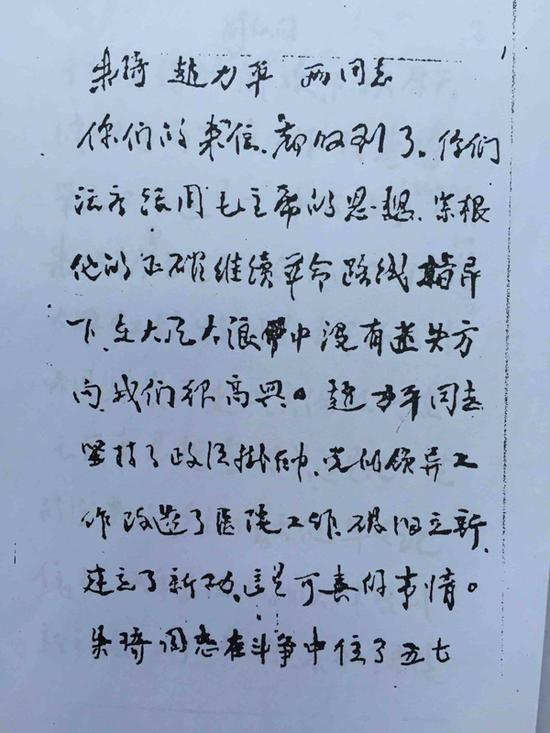 朱琦 赵力平 两同志
你们的来信、都收到了。你们
活学活用毛主席的思想、紧跟
他的正确继续革命路线指导
下、在大风大浪中没有迷失方
向、我们很高兴。赵力平同志
坚持了政治挂帅、党的领导工
作改造了医院工作、破旧立新、
建立了新功、这是可喜的事情。
朱琦同志在斗争中住了五七